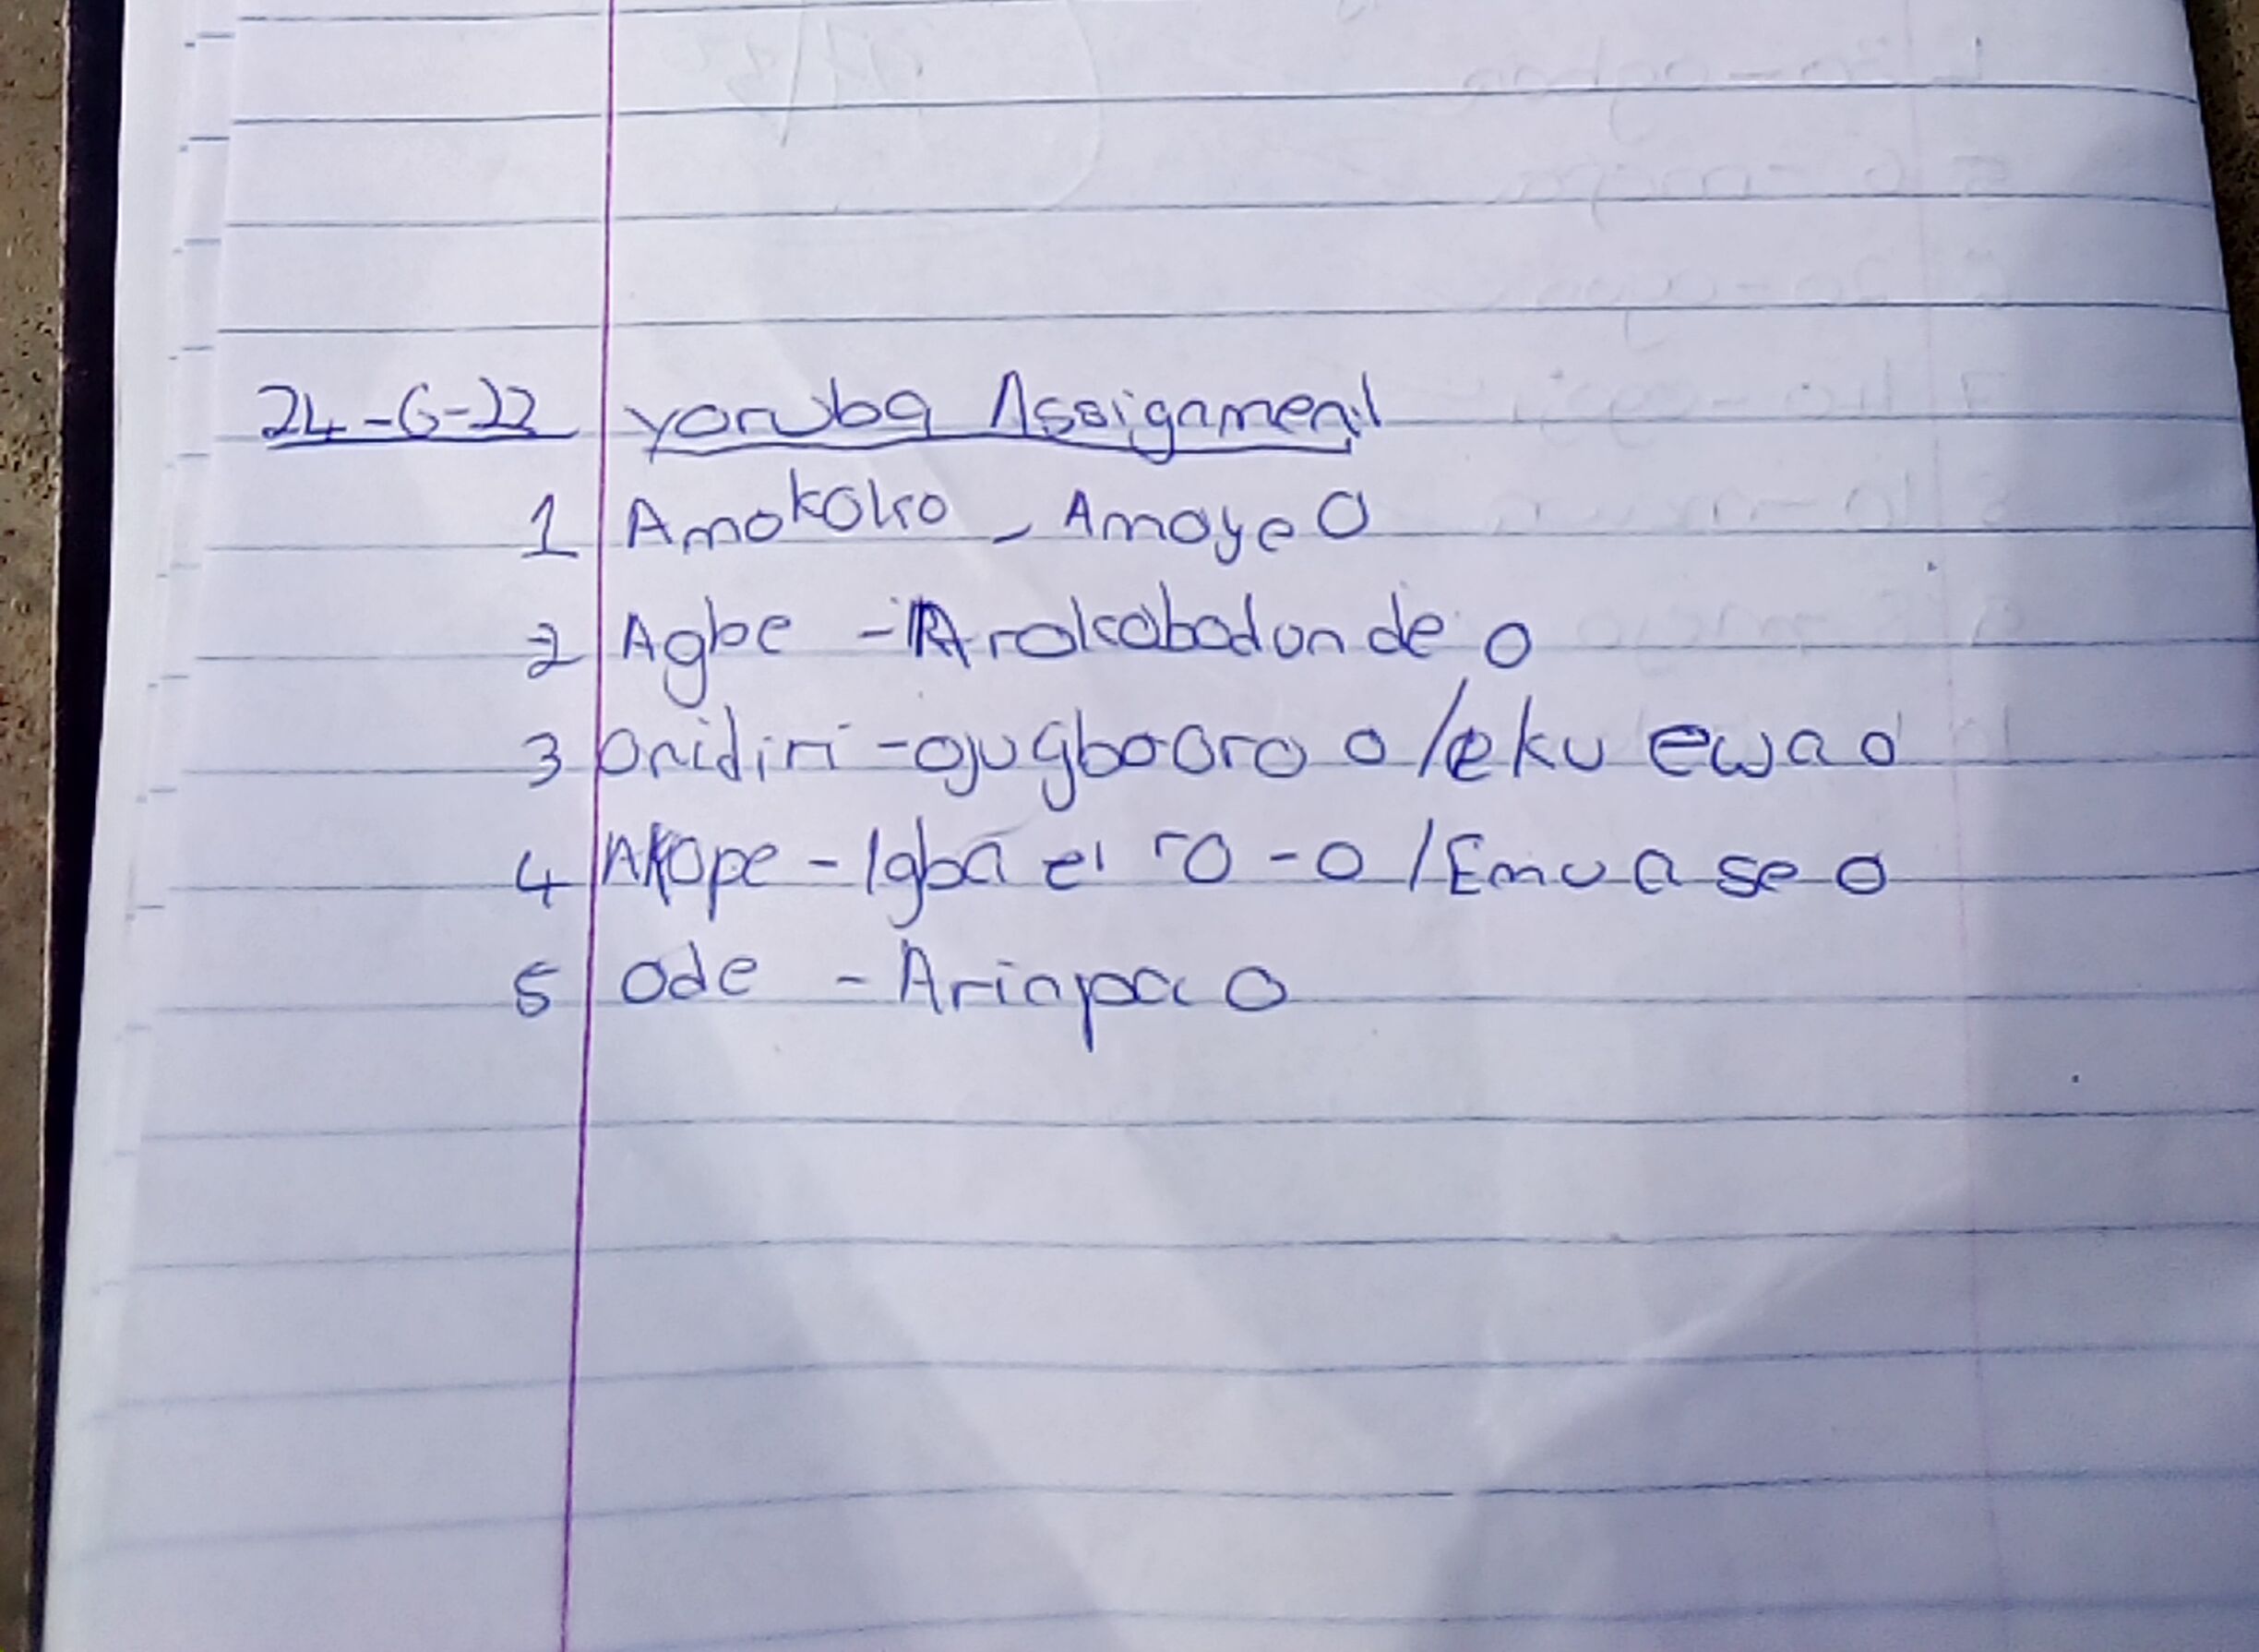 24-6-22 Yoruba Assignment
1 Amokoko - Amoye O
2 Agbe - Arokobodunde o
3 Onidiri - ojugbooro o / eku ewa o
4 Akope - Igba ei ro - o / Emu a se o
5 Ode - Arinpa o